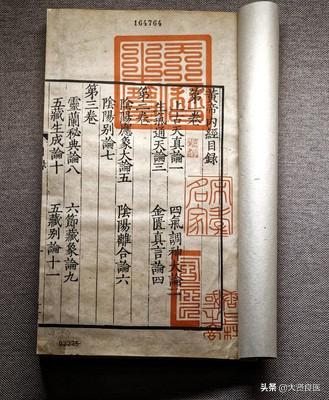 164764
黃帝內經目錄
第一卷
上古天真論一
四氣調神大論二
生氣通天論三
金匱真言論四
第二卷
陰陽應象大論五
陰陽離合論六
陰陽別論七
第三卷
靈蘭秘典論八
六節藏象論九
五藏生成論十
五藏別論十一
03325
头条 @大贤良医